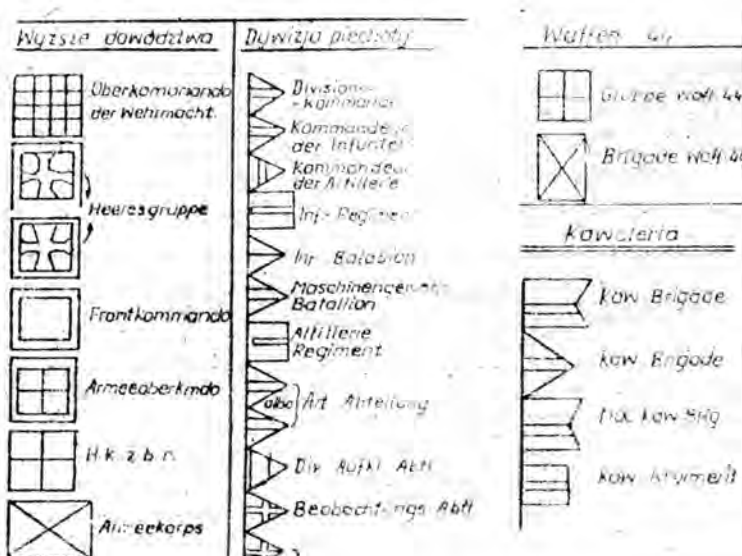 Wyższe dowództwa
Oberkomando
der Wehrmacht.
Heeresgruppe
Frontkommando
Armeeoberkmdo
H.k. z.b.r.
Armeekorps
Dywizja piechoty
Divisions-
-kommando
Kommande
der Infante
Kommandeu
der Artillerie
Inf- Regiment
Inf. Batalion
Maschinengewehr
Batallion
Altillerie
Regiment
albo Art Abteilung
Div Aufkl Abtl
Beobachtungs Abtl
Waffen 44
Gruppe waff. 44
Brigade waff 44
Kawaleria
Kaw Brigade
Kaw. Brigade
Kaw. BRG
Kaw.